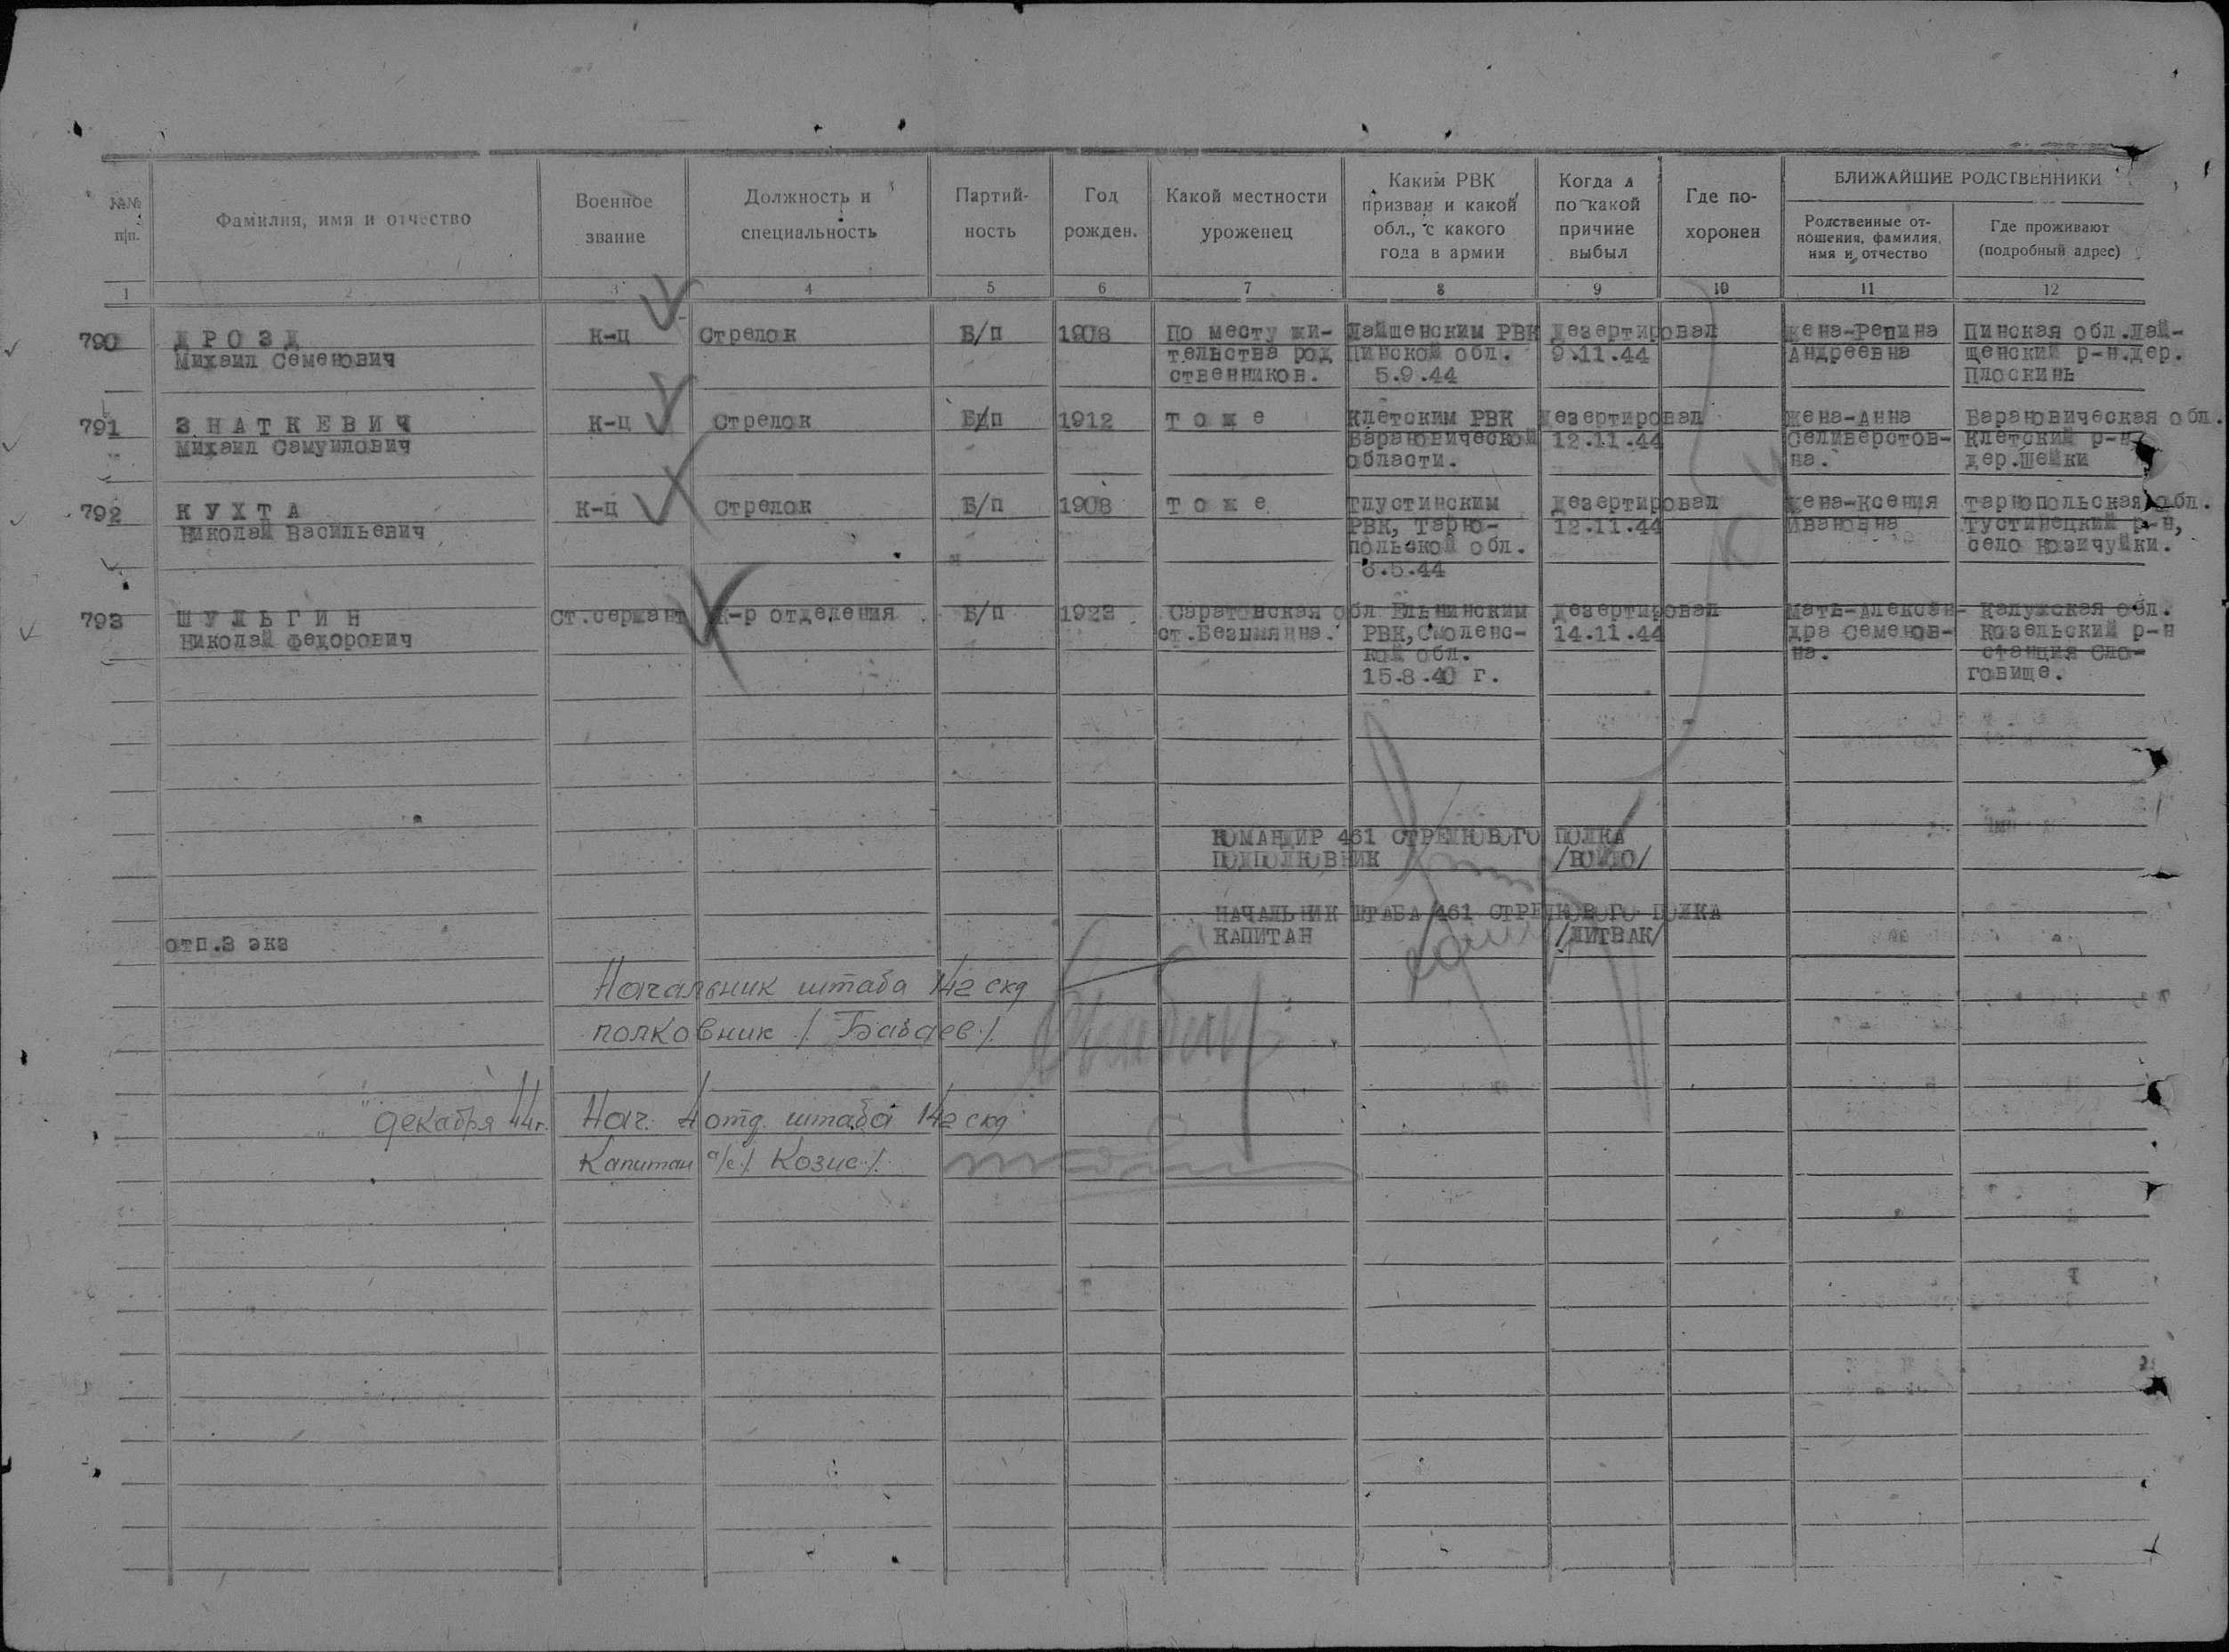 №№ п|п.
Фамилия, имя и отчество
Военное звание
Должность и специальность
Партий-ность
Год рожден.
Какой местности уроженец
Каким РВК призван и какой обл., с какого года в армии
Когда и по какой причине выбыл
Где по-хоронен
БЛИЖАЙШИЕ РОДСТВЕННИКИ
Родственные от-ношения, фамилия, имя и отчество
Где проживают (подробный адрес)
1 2 3 4 5 6 7 8 9 10 11 12
790 ДРОЗД к-ц Стрелок Б/п 1908 По месту жи- Лайшенским РВК дезертировал жена-Репина Пинская обл.Лай-
Михаил Семенович тельства род Пинской обл. 9.11.44 Андреевна щенский р-н.дер.
ственников. 5.9.44 Плоскинь
791 ЗНАТКЕВИЧ к-ц Стрелок Б/п 1912 тоже Клетским РВК дезертировал жена-Анна Барановическая обл.
Михаил Самуилович Барановической 12.11.44 Селиверстов- Клетский р-н
области. на. дер.Шейки
792 КУХТА к-ц Стрелок Б/п 1908 тоже Тлустинским дезертировал жена-Ксения Тарнопольская обл.
Николай Васильевич РВК, Тарно- 12.11.44 Ивановна Тустинецкий р-н,
польской обл. село Козичуйки.
8.5.44
793 ШУЛЬГИН Ст.сержант К-р отделения Б/п 1923 Саратовская обл Ельнинским дезертировал Мать-Алексан- Калужская обл.
Николай Федорович ст.Безымянна. РВК,Смоленс- 14.11.44 дра Семенов- Козельский р-н
кой обл. на. станция Сло-
15.8.40 г. говище.
КОМАНДИР 461 СТРЕЛКОВОГО ПОЛКА
ПОДПОЛКОВНИК
НАЧАЛЬНИК ШТАБА 461 СТРЕЛКОВОГО ПОЛКА
отп.3 экз КАПИТАН /ЛИТВАК/
Начальник штаба 142 скд
полковник /Бабаев/
декабря 44г. Нач. 4 отд. штаба 142 скд
Капитан а/с / Козис /